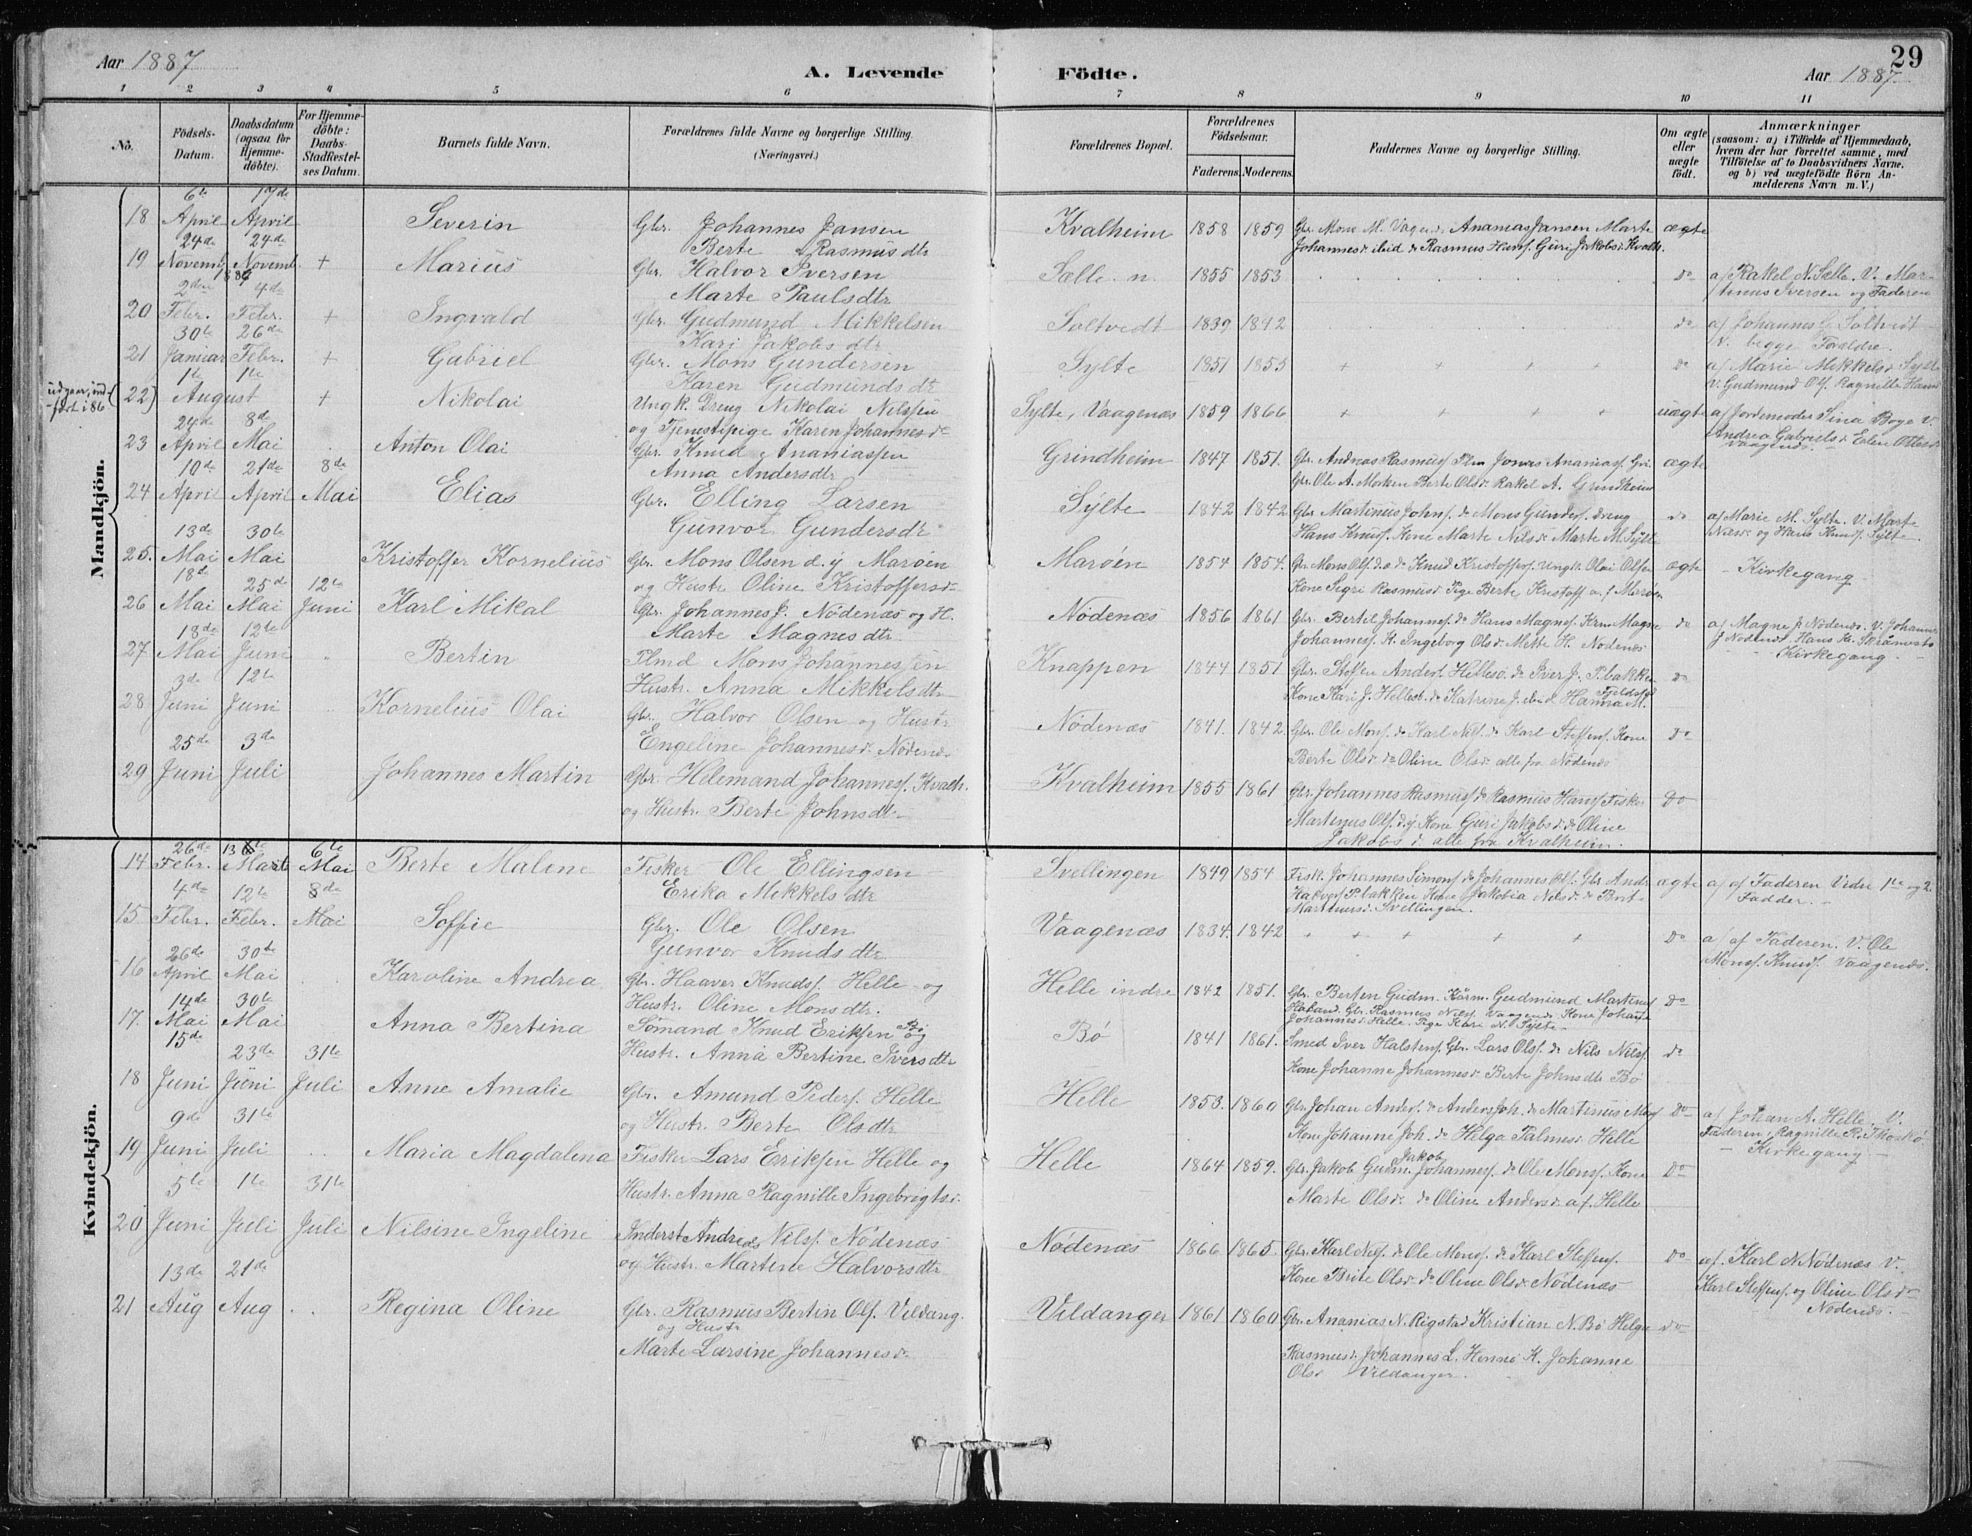 Aar 1887
A. Levende
Födte.
Aar 1887.
29
1 2 3 4 5 6 7 8 9 10 11
Nö.
Födsels-Datum.
Daabsdatum (ogsaa for Hjemmedöbte).
For Hjemmedöbte: Daabs-Stadfæstelses Datum.
Barnets fulde Navn.
Forældrenes fulde Navne og borgerlige Stilling.
(Næringsvei.)
Forældrenes Bopæl.
Forældrenes Födselsaar.
Faderens. Moderens.
Faddernes Navne og borgerlige Stilling.
Om ægte eller uægte födt.
Anmærkninger
(saasom: a) i Tilfælde af Hjemmedaab, hvem der har forrettet samme, med Tilföielse af to Daabsvidners Navne, og b) ved uægtefödte Börn Anmelderens Navn m. V.)
Mandkjön.
18 6te April 17de April Severin Gbr. Johannes Jansen
Berte Rasmusdtr
Kvalheim 1858 1859 Gbr. Mons M. Vagen d. Ananias Jansen Marte ægte
Johannesd. ibid d. Rasmus Hans. Guri Jakobsd. Kvalh.
19 24de Novemb. 24de Novemb. 1886 + Marius Gbr. Halvor Iversen
Marte Paulsdtr
Sælle n. 1855 1853 do a/ Rakel N. Sælle. V. Mar-
tinus Iversen og Faderen
20 2den Febr. 4de Febr. + Ingvald Gbr. Gudmund Mikkelsen
Kari Jakobsdtr
Soltvedt 1839 1842 do a/ Johannes G. Soltvedt
V. begge Forældre.
21 30te Januar 26de Febr. + Gabriel Gbr. Mons Gundersen
Karen Gudmundsdtr
Sylte 1851 1853 + + + + do a/ Marie Mikkelsd. Sylte
V. Gudmund Ols. Ragnille Hans
udgaar, ind-
ført i 86
22) 1te 1te August + Nikolai Ungk. Dreng Nikolai Nilssen
og Tjenestepige Karen Johannesd.
Sylte, Vaagenæs 1859 1866 + + + + uægte a/ Jordemoder Sina Boge V.
Andrea Gabrielsd. Elen Olsd.
Vaagenæs.
23 24de April 8de Mai Anton Olai Gbr. Knud Ananiassen
Anna Andersdtr
Grindheim 1847 1851. Gbr. Andreas Rasmuss. Plm Jonas Ananiass. Gri. ægte
Gbr. Ole A. Morken Berte Olsd. Rakel A. Grindheim
24 10de April 21de April 8de Mai Elias Gbr. Elling Larsen
Gunvor Gundersdtr
Sylte 1842 1842 Gbr Martinus Johns. do Mons Gunders. dreng do
Hans Knuss. Kone Marte Nilsd. Marte M. Sylte
a/ Marie M. Sylte. V. Marte
Næss og Hans Knuds. Sylte.
25. 13de Mai 30te Mai Kristoffer Kornelius Gbr. Mons Olsen d. y Marøen
og Hustr. Oline Kristoffersd.
Marøen 1854 1854. Gbr. Mons Ols. d.æ do Knud Kristoffers. Ungk. Olai Olsen ægte
Kone Sigri Rasmusd. Pige Berte Kristoff
- Kirkegang -
26 18de Mai 25de Mai 12te Juni Karl Mikal Gbr. Johannes J. Nødenæs og H.
Marte Magnesdtr.
Nødenæs 1856 1861 Gbr. Bertil Johanness. do Hans Magnes. Magne do
Johanness. K. Ingeborg Olsd. Mette H. Nødenæs
a/ Magne J. Nødenæs. V. Johannes
J Nødenæs. Hans K.
- Kirkegang -
27 18de Mai 12te Juni Bertin Plmd Mons Johannessen
Hustr. Anna Mikkelsdtr
Knappen 1844 1851 Gbr. Steffen Anders. Hellesø. do Iver J. P.bakken do
Kone Kari J. Hellesø. do Katrine J. ibid Hanna M.
Fjeldsfo
28 3de Juni 12te Juni Kornelius Olai Gbr. Halvor Olsen og Hustr.
Engeline Johannesd. Nødenæs
Nødenæs 1841. 1842. Gbr. Ole Mons. do Karl Nils. do Karl Steffens. Kone Do
Berte Olsd. do Oline Olsd. alle fra Nødenæs
29 25de Juni 3de Juli Johannes Martin Gbr Helemand Johanness. Kvalh.
og Hustr. Berte Johnsdtr
Kvalheim 1855 1861 Gbr. Johannes Rasmuss. do Rasmus Hanss. Fisker Do
Martinus Ols. d.y. Kone Guri Jakobsd. do Oline
Jakobsd. alle fra Kvalheim.
Kvindekjön.
14 26de Febr. 13de Marts 6te Mai Berte Malene Fisker Ole Ellingsen
Erika Mikkelsdtr
Svellingen 1849 1854 Fisk. Johannes Simons. do Johannes Ols. Gbr Andr. ægte
Halvors. P.bakken Kone Jakobia Nilsd. do Berte
Martinusd. Svellingen.
a/ af Faderen Vidn 1te og 2.
Fadder. -
15 4de Febr. 12te Febr. 8de Mai Soffie Gbr. Ole Olsen
Gunvor Knudsdtr
Vaagenæs 1834. 1842 + + + + + Do a/ af Faderen. V. Ole
Monss. Knuds. Vaagenæs.
16 26de April 30te Mai Karoline Andrea Gbr. Haaver Knuds. Helle og
Hustr. Oline Monsdtr.
Helle indre 1842 1851. Gbr. Berten Gudm. Gudmund Martinus Do
Haland. Gbr. Rasmus Nils. Vaagenæs Kone Johanne
Johannesd. Helle. Pige Kari N. Sylte
17. 14de Mai 30te Mai Anna Bertina Sømand Knud Eriksen Bø og
Hustr. Anna Bertine Iversdtr
Bø 1841 1861. Smed Iver Halstens. Gbr. Lars Ols. do Nils Nils. do
Kone Johanne Johannesd. Berte Johnsdtr Bø
18 15de Juni 23de Juni 31te Juli Anne Amalie Gbr. Amund Peders. Helle
og Hustr. Berte Olsdtr
Helle 1853. 1860 Gbr Johan Anders. do Anders Joh. do Martinus Mons Do
Kone Johanne Joh. do Helga Salmosd. Helle
a/ Johan A. Helle. V.
Faderen, Ragnille R.
- Kirkegang -
19 9de Juni 31te Juli Maria Magdalena Fisker Lars Eriksen Helle og
Hustr. Anna Ragnille Ingebrigtsd.
Helle 1864 1859. Gbr. Jakob Gudm. Jakob Johanness. do Ole Monss. Kone Do
Marte Olsd. do Oline Andersd. af Helle
20 5te Juni 1te Juli 31te Juli Nilsine Ingeline Inderst Andreas Nils. Nødenæs
og Hustr. Martine Halvorsdtr
Nødenæs 1866 1865. Gbr. Karl Nils. do Ole Monss. do Karl Steffens. Do
Kone Brite Olsd. do Oline Olsd. Nødenæs
a/ Karl N. Nødenæs V.
Karl Steffens. og Oline Olsd.
Nødenæs. -
21 13de Aug 21de Aug Regina Oline Gbr. Rasmus Bertin Ols. Vildang.
og Hustr
Marte Larsine Johannesd.
Vildanger 1861 1860 Gbr. Ananias N. Rigstad Kristian N. Bø Helga do
Rasmusd. Johannes L. Hennø K. Johanne
Olsd Vildanger.